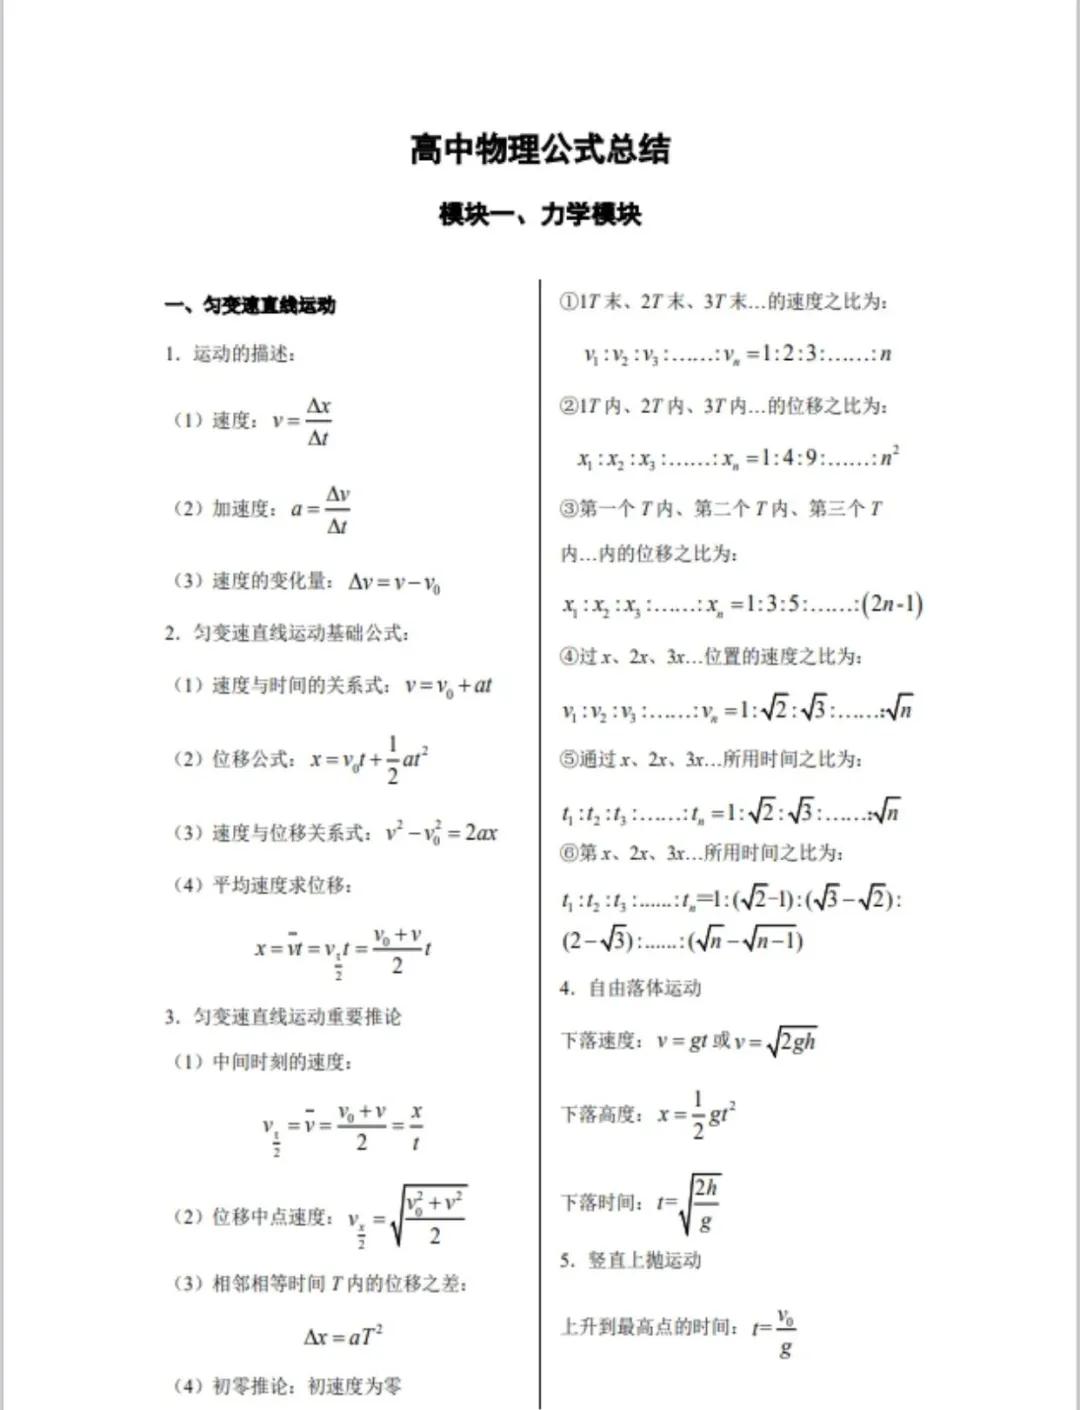 高中物理公式总结
模块一、力学模块
一、匀变速直线运动
1．运动的描述：
（1）速度：v = Δx/Δt
（2）加速度：a = Δv/Δt
（3）速度的变化量：Δv = v − v₀
2．匀变速直线运动基础公式：
（1）速度与时间的关系式：v = v₀ + at
（2）位移公式：x = v₀t + 1/2 at²
（3）速度与位移关系式：v² − v₀² = 2ax
（4）平均速度求位移：
x = v̄t = v_{t/2} t = (v₀ + v)/2 t
3．匀变速直线运动重要推论
（1）中间时刻的速度：
v_{t/2} = v̄ = (v₀ + v)/2 = x/t
（2）位移中点速度：v_{x/2} = √((v₀² + v²)/2)
（3）相邻相等时间 T 内的位移之差：
Δx = aT²
（4）初零推论：初速度为零
①1T 末、2T 末、3T 末…的速度之比为：
v₁ : v₂ : v₃ : …… : vₙ = 1 : 2 : 3 : …… : n
②1T 内、2T 内、3T 内…的位移之比为：
x₁ : x₂ : x₃ : …… : xₙ = 1 : 4 : 9 : …… : n²
③第一个 T 内、第二个 T 内、第三个 T
内…内的位移之比为：
x₁ : x₂ : x₃ : …… : xₙ = 1 : 3 : 5 : …… : (2n-1)
④过 x、2x、3x…位置的速度之比为：
v₁ : v₂ : v₃ : …… : vₙ = 1 : √2 : √3 : …… : √n
⑤通过 x、2x、3x…所用时间之比为：
t₁ : t₂ : t₃ : …… : tₙ = 1 : √2 : √3 : …… : √n
⑥第 x、2x、3x…所用时间之比为：
t₁ : t₂ : t₃ : …… : tₙ = 1 : (√2−1) : (√3 − √2) :
(2 − √3) : …… : (√n − √(n−1))
4．自由落体运动
下落速度：v = gt 或 v = √(2gh)
下落高度：x = 1/2 gt²
下落时间：t = √(2h/g)
5．竖直上抛运动
上升到最高点的时间：t = v₀/g